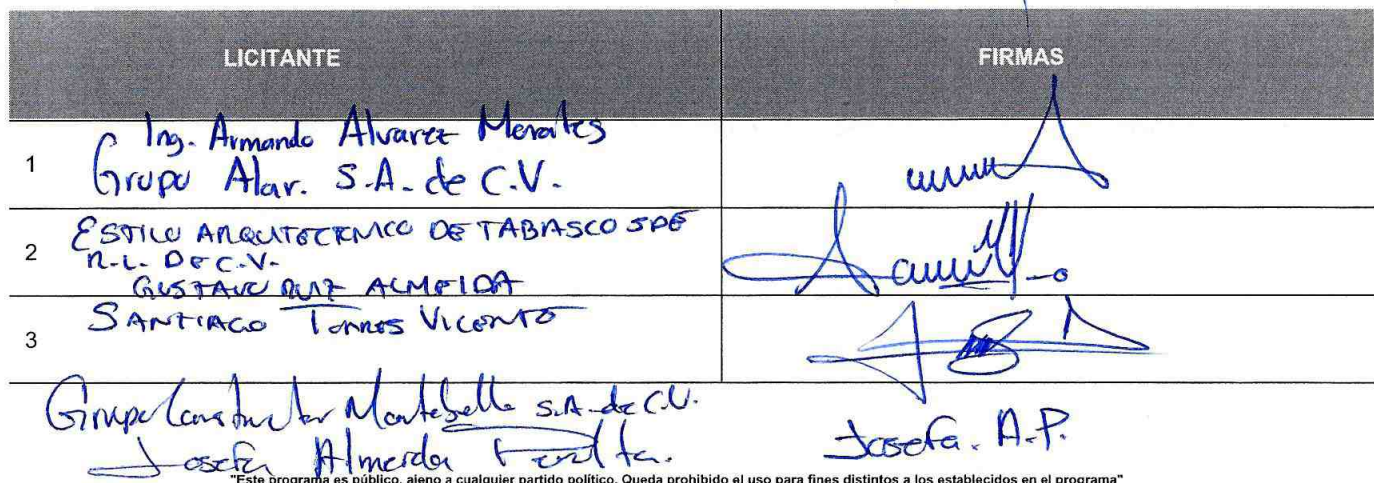 LICITANTE FIRMAS
1 Ing. Armando Alvarez Morales
Grupo Alar. S.A. de C.V.
2 ESTILO ARQUITECTENICO DE TABASCO S DE
R.L. DE C.V.
GUSTAVO RUIZ ALMEIDA
3 SANTIAGO TORRES VICENTE
Grupo Constructor Montebello S.A. de C.V.
Josefa Almeida Peralta.
Josefa. A.P.
"Este programa es público, ajeno a cualquier partido político. Queda prohibido el uso para fines distintos a los establecidos en el programa"